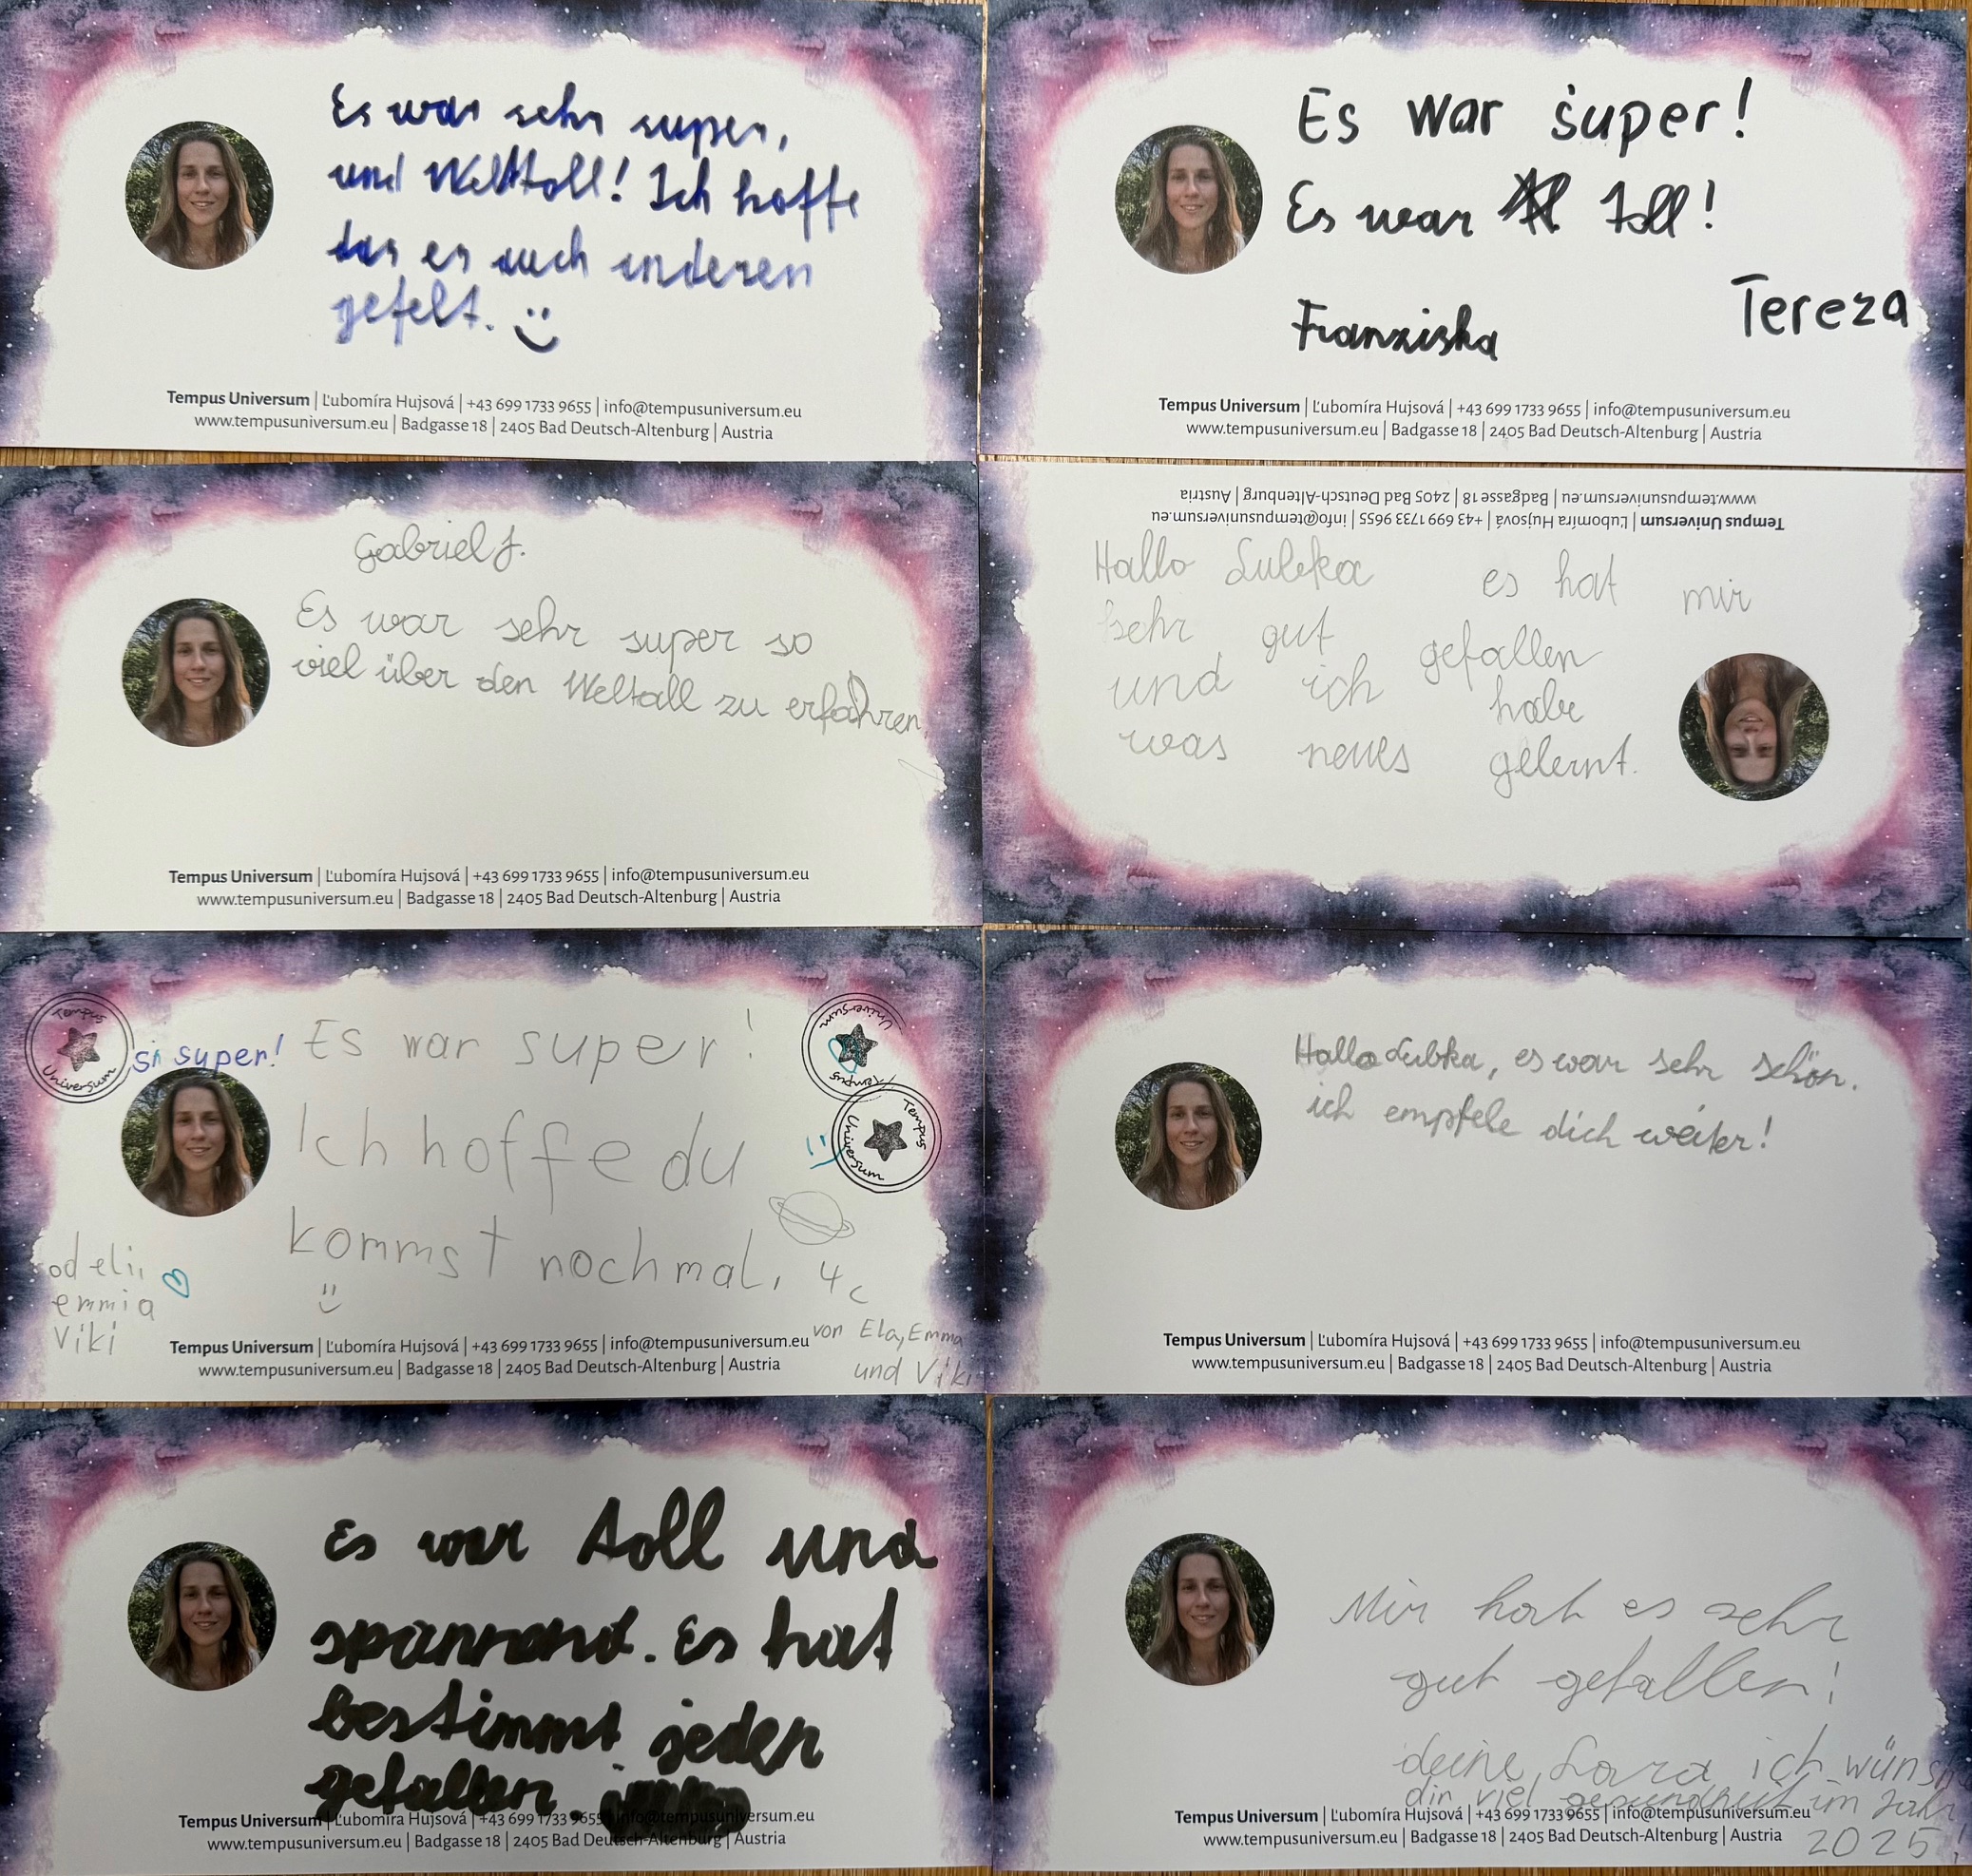 Es war sehr super,
und Welttoll! Ich hoffe
das es auch anderen
gefelt.
Tempus Universum | Ľubomíra Hujsová | +43 699 1733 9655 | info@tempusuniversum.eu
www.tempusuniversum.eu | Badgasse 18 | 2405 Bad Deutsch-Altenburg | Austria
Es war super!
Es war Toll!
Tereza
Franziska
Tempus Universum | Ľubomíra Hujsová | +43 699 1733 9655 | info@tempusuniversum.eu
www.tempusuniversum.eu | Badgasse 18 | 2405 Bad Deutsch-Altenburg | Austria
Gabriel J.
Es war sehr super so
viel über den Weltall zu erfahren.
Tempus Universum | Ľubomíra Hujsová | +43 699 1733 9655 | info@tempusuniversum.eu
www.tempusuniversum.eu | Badgasse 18 | 2405 Bad Deutsch-Altenburg | Austria
Tempus Universum | Ľubomíra Hujsová | +43 699 1733 9655 | info@tempusuniversum.eu
www.tempusuniversum.eu | Badgasse 18 | 2405 Bad Deutsch-Altenburg | Austria
Hallo es hat mir
sehr gut gefallen
und ich habe
was neues gelernt.
Tempus Universum
si super!
Es war super!
Tempus Universum
Tempus Universum
Ich hoffe du
kommst nochmal. 4c
od eli,
emmia
Viki
von Ela, Emma
und Viki
Tempus Universum | Ľubomíra Hujsová | +43 699 1733 9655 | info@tempusuniversum.eu
www.tempusuniversum.eu | Badgasse 18 | 2405 Bad Deutsch-Altenburg | Austria
Hallo Lubka, es war sehr schön.
ich empfele dich weiter!
Tempus Universum | Ľubomíra Hujsová | +43 699 1733 9655 | info@tempusuniversum.eu
www.tempusuniversum.eu | Badgasse 18 | 2405 Bad Deutsch-Altenburg | Austria
Es war toll und
spannend. Es hat
bestimmt jeden
gefallen
Tempus Universum | Ľubomíra Hujsová | +43 699 1733 9655 | info@tempusuniversum.eu
www.tempusuniversum.eu | Badgasse 18 | 2405 Bad Deutsch-Altenburg | Austria
Mir hat es sehr
gut gefallen!
deine Lara ich wünsch
dir viel gesundheit im Jahr
2025!
Tempus Universum | Ľubomíra Hujsová | +43 699 1733 9655 | info@tempusuniversum.eu
www.tempusuniversum.eu | Badgasse 18 | 2405 Bad Deutsch-Altenburg | Austria